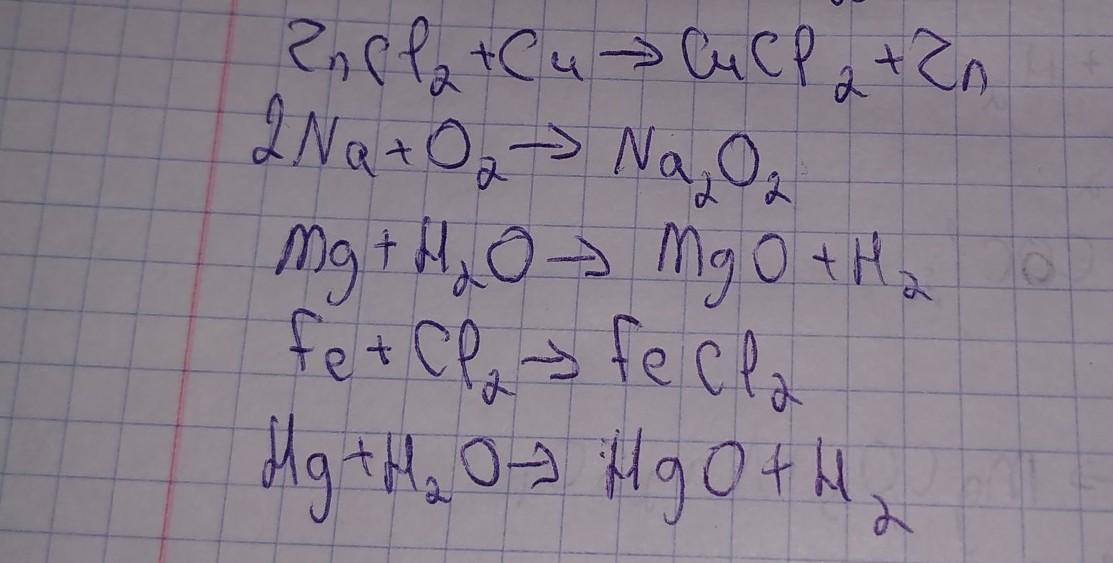 ZnCl₂+Cu→CuCl₂+Zn
2Na+O₂→Na₂O₂
Mg+H₂O→MgO+H₂
Fe+Cl₂→FeCl₂
Hg+H₂O→HgO+H₂